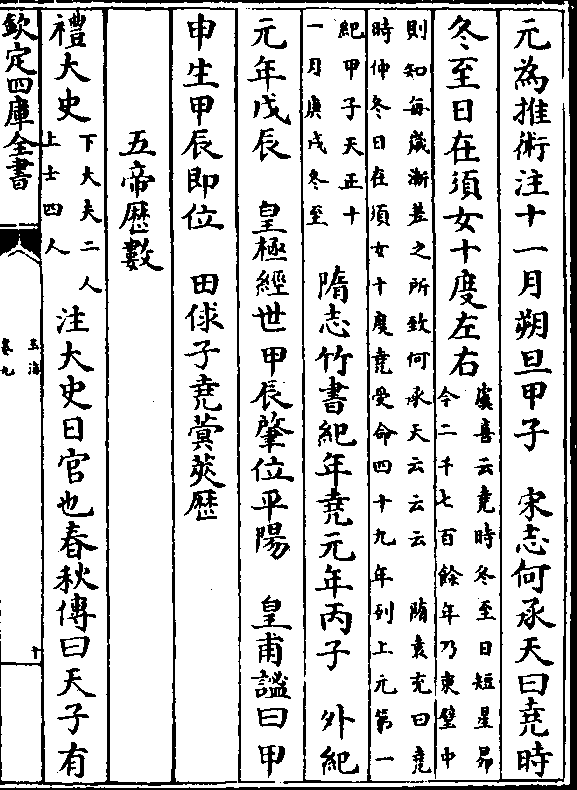 元為推術注十一月朔旦甲子　宋志何承天曰堯時
冬至日在須女十度左右虞喜云堯時冬至日短星昴
今二千七百餘年乃東壁中
則知每歲漸差之所致何承天云云云　隋袁充曰堯
時仲冬日在須女十度堯受命四十九年到上元第一
紀甲子天正十
一月庚戌冬至　隋志竹書紀年堯元年丙子　外紀
元年戊辰　皇極經世甲辰肇位平陽　皇甫謐曰甲
申生甲辰即位　田俅子堯蓂莢歷
五帝歷數
禮大史下大夫二人
上士四人　注大史日官也春秋傳曰天子有
欽定四庫全書
玉海
卷九
十